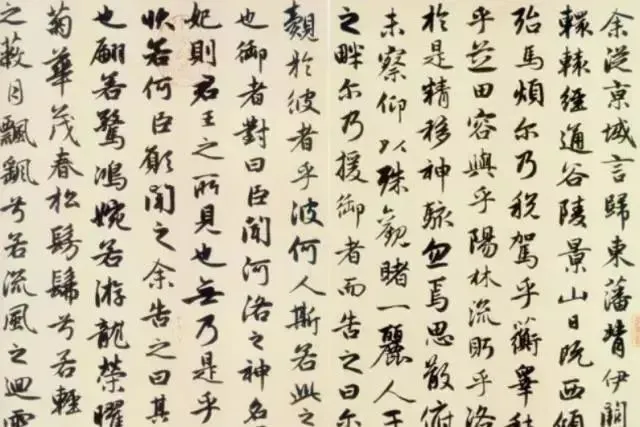 余從京城言歸東藩背伊闕
轘轅經通谷陵景山日既西傾
殆馬煩尒乃稅駕乎蘅皋秣
乎芝田容與乎陽林流眄乎洛
於是精移神駭忽焉思散俯
未察仰以殊觀睹一麗人于
之畔尒乃援御者而告之曰尒
覿於彼者乎彼何人斯若此之
也御者對曰臣聞河洛之神名
妃則君王之所見也無乃是乎
狀若何臣願聞之余告之曰其
也翩若驚鴻婉若游龍榮曜
菊華茂春松髣髴兮若輕
之蔽月飄飖兮若流風之迴雪